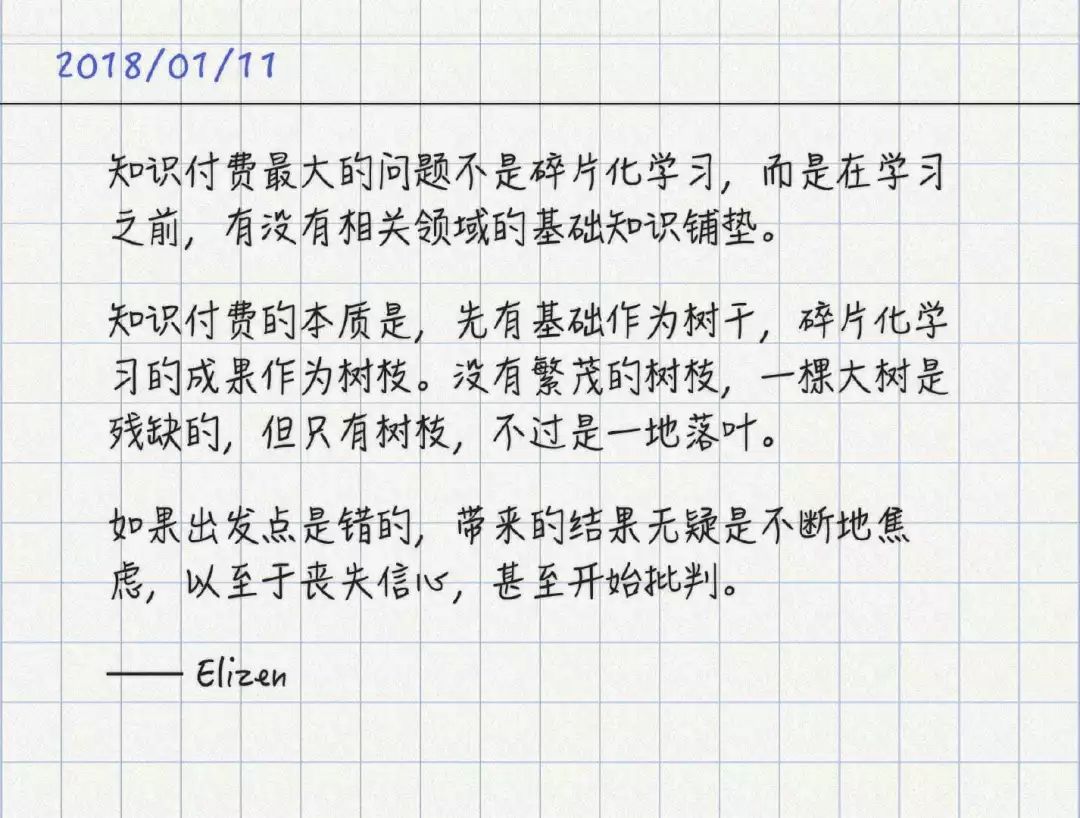 2018/01/11
知识付费最大的问题不是碎片化学习，而是在学习
之前，有没有相关领域的基础知识铺垫。
知识付费的本质是，先有基础作为树干，碎片化学
习的成果作为树枝。没有繁茂的树枝，一棵大树是
残缺的，但只有树枝，不过是一地落叶。
如果出发点是错的，带来的结果无疑是不断地焦
虑，以至于丧失信心，甚至开始批判。
—— Elizen